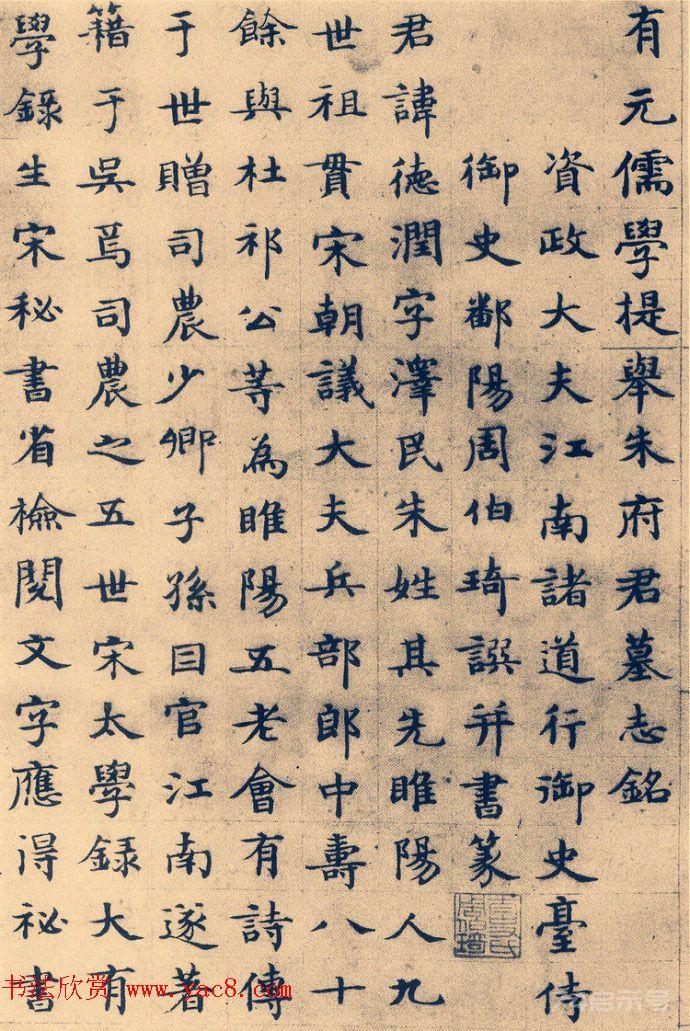 有元儒學提舉朱府君墓志銘
資政大夫江南諸道行御史臺侍
御史鄱陽周伯琦譔并書篆
君諱德潤字澤民朱姓其先睢陽人九
世祖貫宋朝議大夫兵部郎中壽八十
餘與杜祁公等為睢陽五老會有詩傳
于世贈司農少卿子孫因官江南遂著
籍于吳焉司農之五世宋太學録大有
學錄生宋秘書省檢閱文字應得祕書
书法欣赏 www.yac8.com